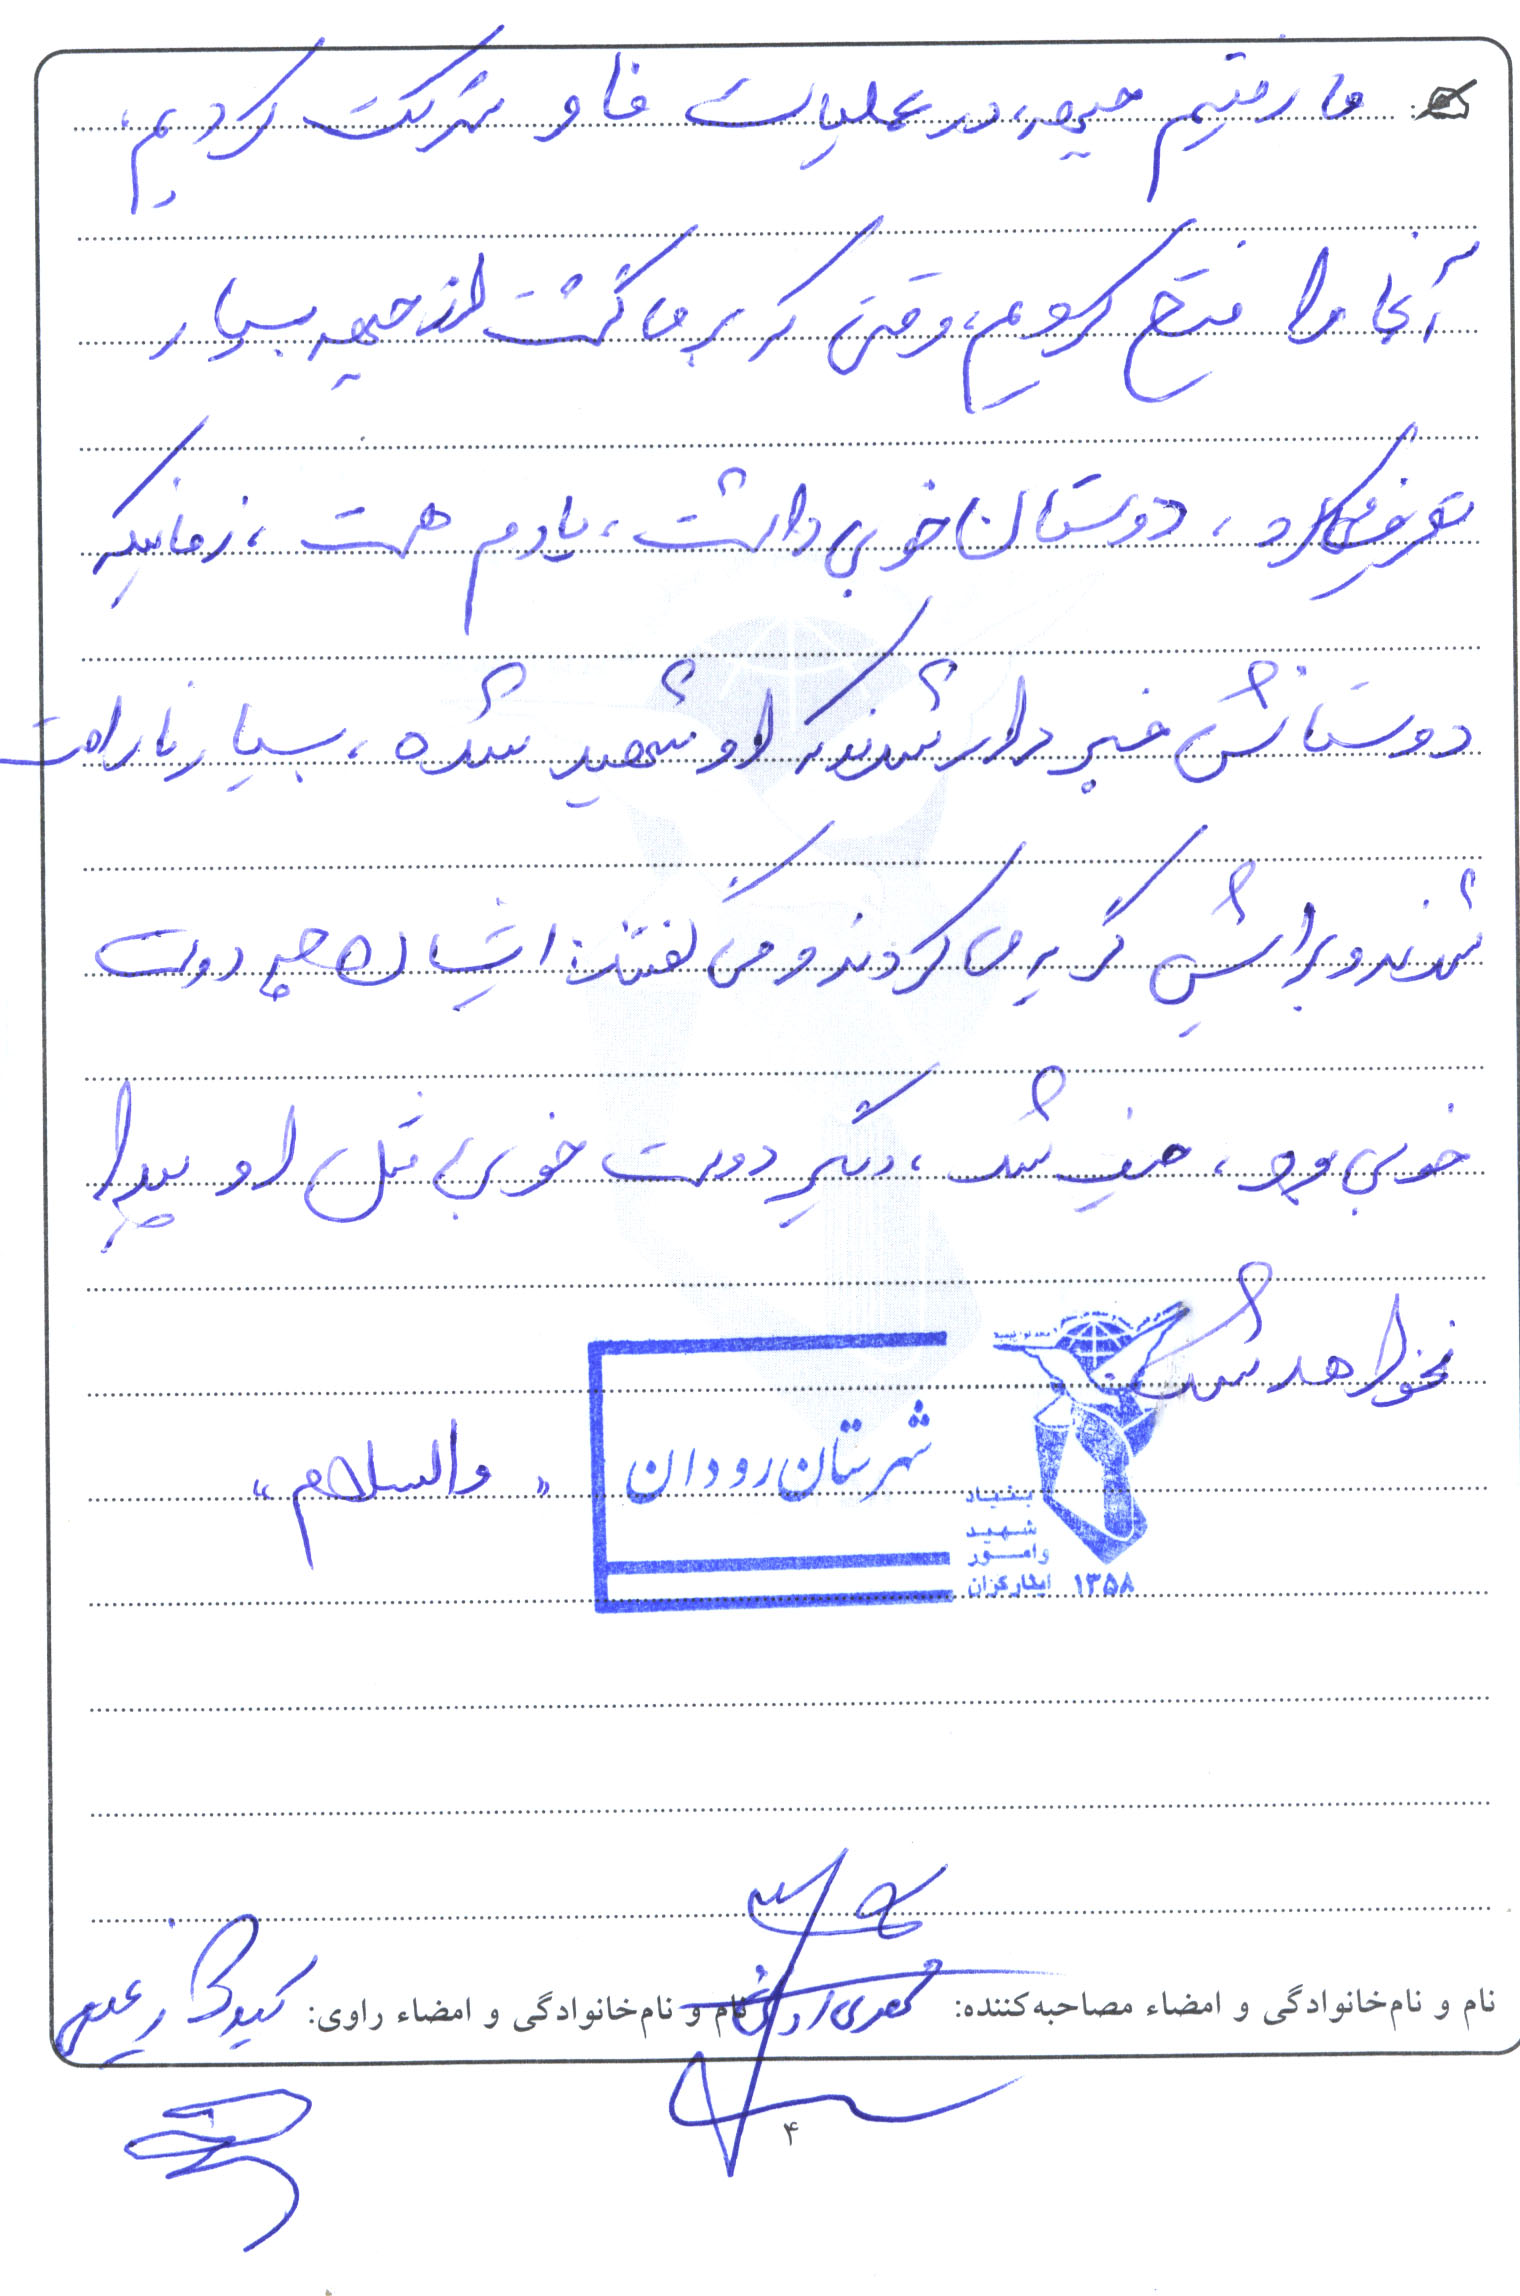 ما رفتیم جبهه، در عملیات فاو شرکت کردیم،
آنجا را فتح کردیم، وقتی که برمی گشت از جبهه بسیار
تعریف می کرد، دوستان خوبی داشت، یادم هست، زمانیکه
دوستانش خبردار شدند که او شهید شده، بسیار ناراحت
شدند و برایش گریه می کردند و می گفتند: ایشان چه دوست
خوبی بود، حیف شد، دیگر دوست خوبی مثل او پیدا
نخواهد شد
«والسلام»
شهرستان رودان
بنیاد
شهید
وامور
ایثارگران ۱۳۵۸
نام و نام‌خانوادگی و امضاء مصاحبه‌کننده:
نام و نام‌خانوادگی و امضاء راوی:
۴